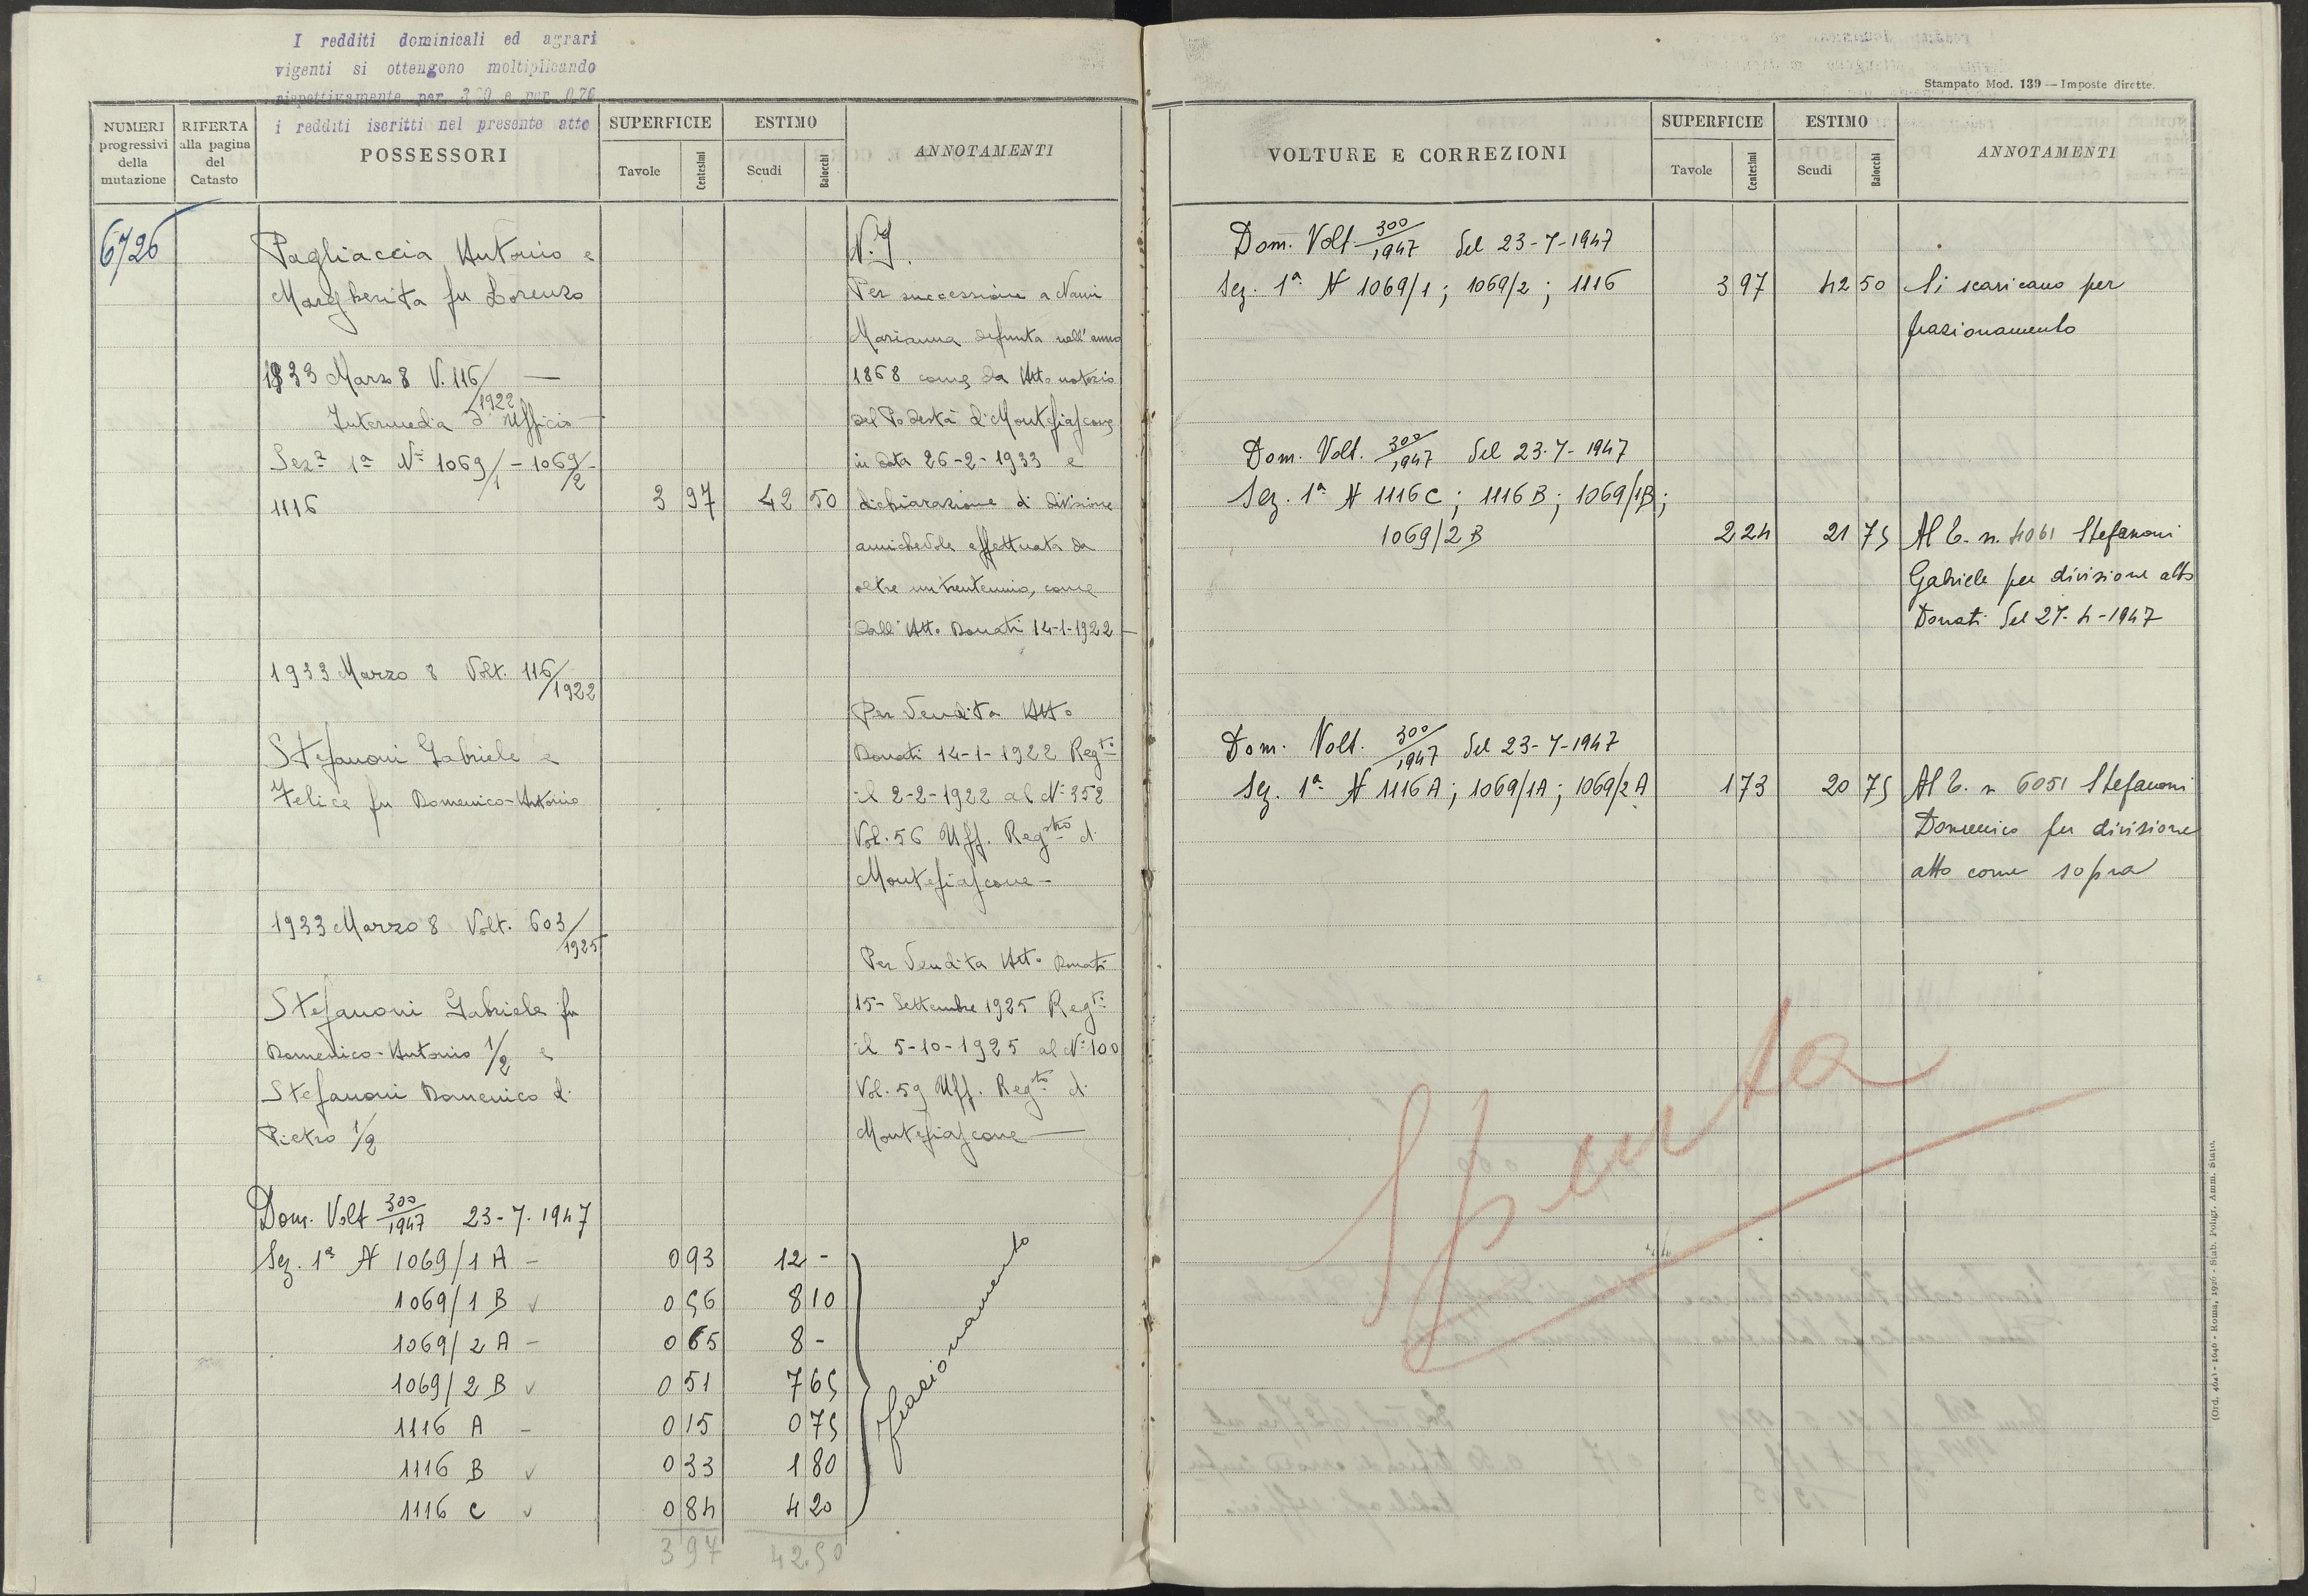 I redditi dominicali ed agrari
vigenti si ottengono moltiplicando
rispettivamente per
i redditi iscritti nel presente atto
NUMERI progressivi della mutazione
RIFERTA alla pagina del Catasto
POSSESSORI
SUPERFICIE
Tavole Centesimi
ESTIMO
Scudi Baiocchi
ANNOTAMENTI
6726
Pagliaccia Antonio e
Margherita fu Lorenzo
1933 Marzo 8 V. 116/1922 —
Intermedia d'Ufficio —
Sez.ª 1ª Nº 1069/1 - 1069/2 -
1116 3 97 42 50
1933 Marzo 8 Volt. 116/1922
Stefanoni Gabriele e
Felice fu Domenico-Antonio
1933 Marzo 8 Volt. 603/1925
Stefanoni Gabriele fu
Domenico-Antonio 1/2 e
Stefanoni Domenico di
Pietro 1/2
Dom. Volt 300/1947 23-7-1947
Sez. 1ª N 1069/1 A - 0 93 12 -
1069/1 B ✓ 0 56 8 10
1069/2 A - 0 65 8 -
1069/2 B ✓ 0 51 7 65
1116 A - 0 15 0 75
1116 B ✓ 0 33 1 80
1116 C ✓ 0 84 4 20
3 97 42.50
frazionamento
Per successione a
Marianna defunta nell'anno
1868 come da Atto notorio
del Podestà di Montefiascone
in data 26-2-1933 e
dichiarazione di divisione
amichevole effettuata da
oltre un trentennio, come
dall'Atto Donati 14-1-1922 —
Per Vendita Atto
Donati 14-1-1922 Regto
il 2-2-1922 al Nº 352
Vol. 56 Uff. Regstro di
Montefiascone -
Per Vendita Atto Donati
15 - Settembre 1925 Regto
il 5-10-1925 al Nº 100
Vol. 59 Uff. Regtro di
Montefiascone —
Stampato Mod. 139 — Imposte dirette.
VOLTURE E CORREZIONI
SUPERFICIE
Tavole Centesimi
ESTIMO
Scudi Baiocchi
ANNOTAMENTI
Dom. Volt 300/1947 del 23-7-1947
Sez. 1ª N 1069/1 ; 1069/2 ; 1116 3 97 42 50 Si scaricano per
frazionamento
Dom. Volt. 300/1947 del 23-7-1947
Sez. 1ª N 1116 C ; 1116 B ; 1069/1B ;
1069/2 B 2 24 21 75 Al C. n. 4061 Stefanoni
Gabriele per divisione atto
Donati del 27-4-1947
Dom. Volt. 300/1947 del 23-7-1947
Sez. 1ª N 1116 A ; 1069/1A ; 1069/2 A 1 73 20 75 Al C. n 6051 Stefanoni
Domenico per divisione
atto come sopra
Spenta
Roma, 1930 - Stab. Poligr. Amm. Stato.